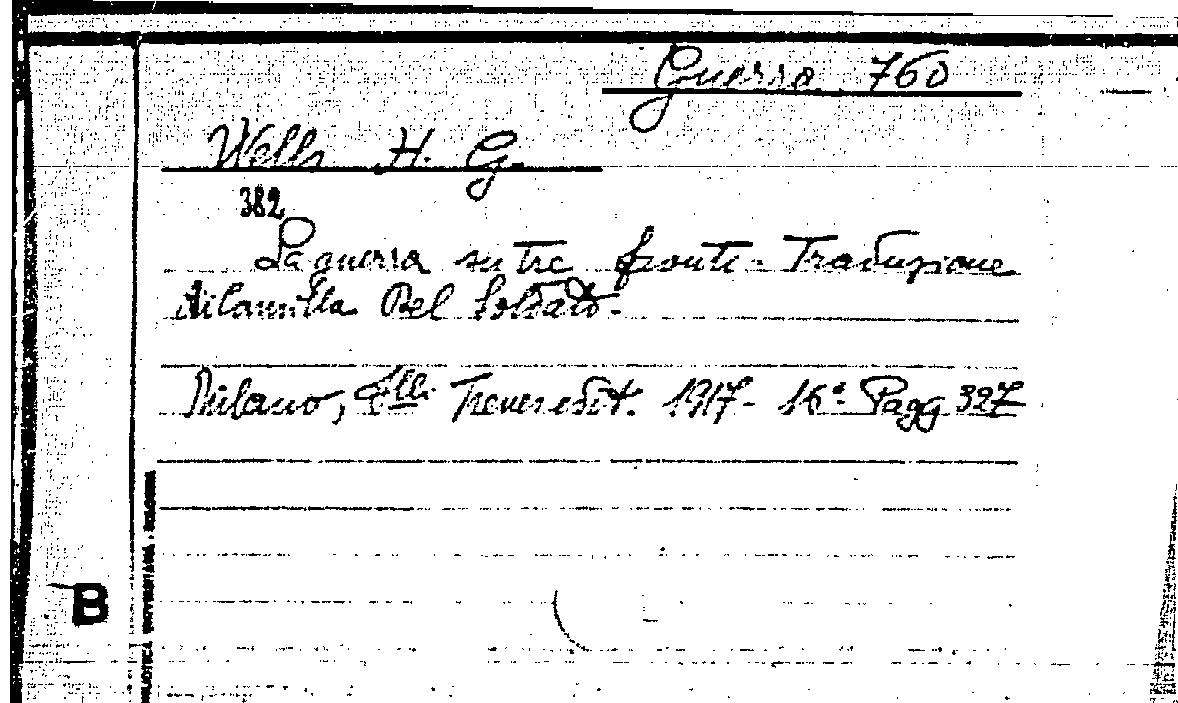 Guerra 760
Wells H. G.
382
La guerra su tre fronti - Traduzione
di Camilla Del Soldato -
Milano, F.lli Treves edit. 1917 - 16° Pagg 327
B
BIBLIOTECA UNIVERSITARIA . BOLOGNA